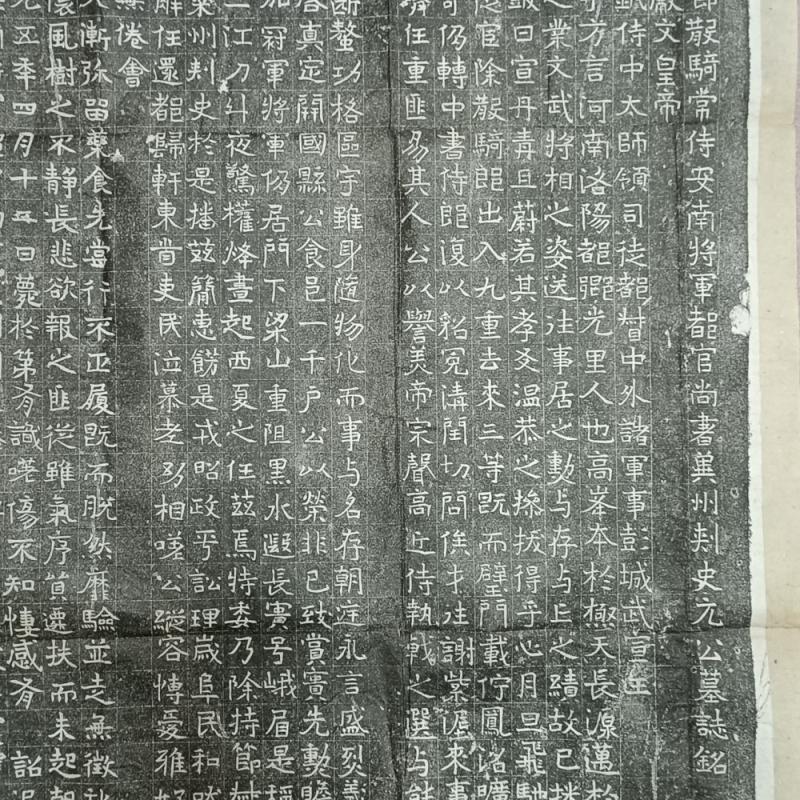 郎散騎常侍安南將軍都官尚書冀州刾史元公墓誌銘
獻文皇帝
侍中太師領司徒都督中外諸軍事彭城武宣王
方言河南洛陽都鄉光里人也高峯本於極天長源邁於
之業文武將相之姿送往事居之勳与存与亡之績故已
曰宣丹青且蔚若其孝友溫恭之操拔得乎心月旦飛馳
官除散騎郎出入九重去來三等既而壁門載佇鳳沼曠
仍轉中書侍郎復以貂冕清閏切問俟才往謝紫渥來事
任重匪易其人公以譽美帝宗聲高近侍執戟之選与能
斷鼇功格區宇雖身隨物化而事与名存朝廷永言盛烈義
真定開國縣公食邑一千戶公以榮非已致賞實先勳
冠軍將軍仍居門下梁山重阻黑水遐長實号峨眉是稱
二江刀斗夜驚權烽晝起西夏之任茲焉特委乃除持節
州刾史於是播茲簡惠餝是戎昭政平訟理歲阜民和
解任還都歸軒東首吏民泣慕老幼相嗟公縱容愽愛雅好
無倦會
漸弥留藥食先嘗行不正履既而脫然靡驗並走無徵
懷風樹之不静長悲欲報之匪從雖氣序笡遷扶而未起
元五年四月十五日薨於第有識嗟傷不知悽感有詔